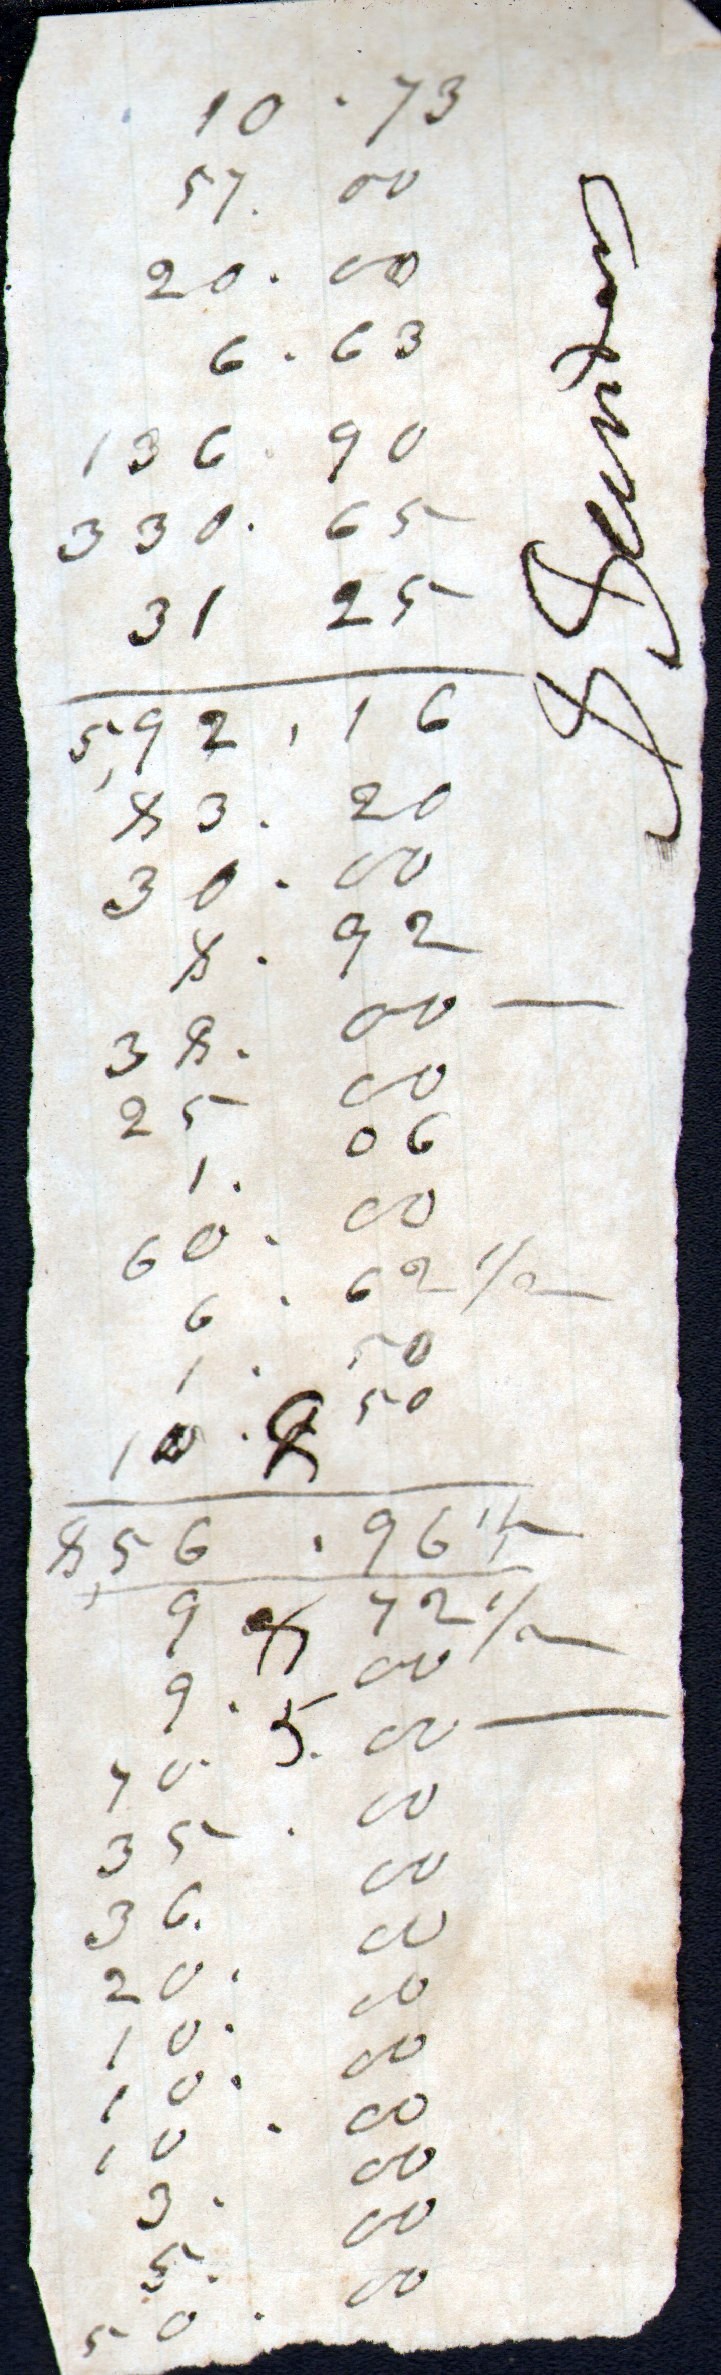 10.73
57.00
20.00
6.63
136.90
330.65
31 25
592.16
83.20
30.00
8.92
38.00 —
25 00
1.06
60.00
6.62 1/2
1.50
10. 50
856.96 1/2
9 8 72 1/2
9.00
70. 5.00 —
35.00
36.00
20.00
10.00
10.00
10.00
3.00
5.00
50.00